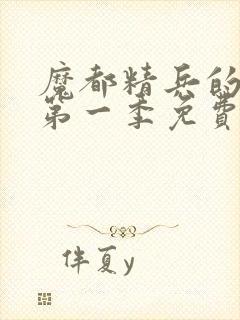 魔都精兵的
第一季免費
伴夏y